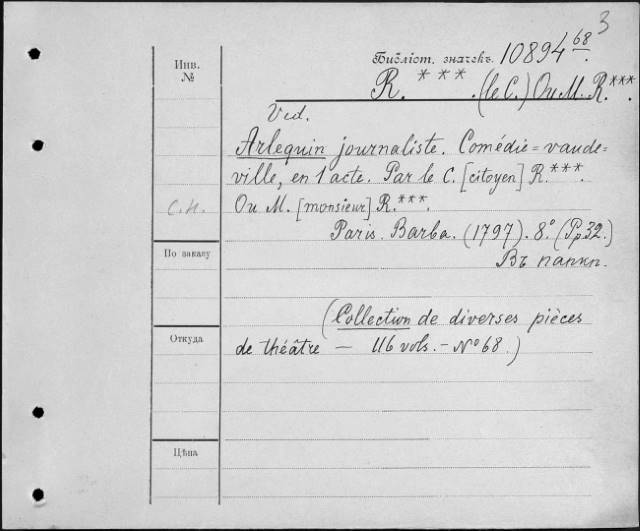 3
Инв. №
Библіот. значекъ. 10894 68.
R. ***. (le C.) Ou M. R.***.
Vid.
Arlequin journaliste. Comédie=vaude=
ville, en 1 acte. Par le C. [citoyen] R.***.
С.Н.
Ou M. [monsieur] R.***.
Paris. Barba. (1797). 8.° (Pp32.)
По заказу
Въ папкп.
(Collection de diverses pièces
Откуда
de théâtre — 116 vols. - No 68.)
Цѣна